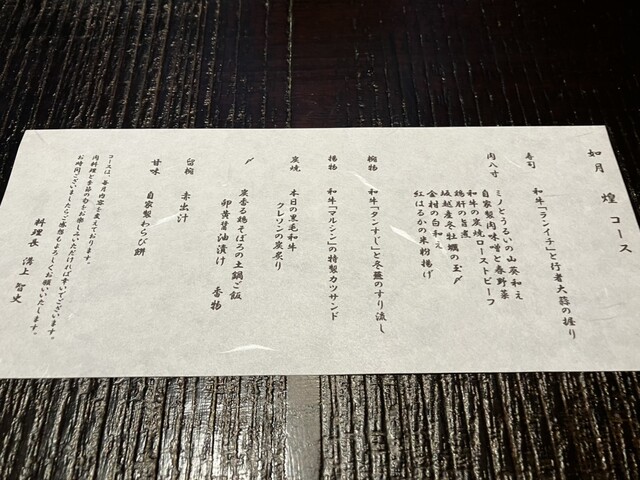 如月 煌コース
寿司 和牛「ランイチ」と行者大蒜の握り
肉八寸 ミノとうるいの山葵和え
自家製肉味噌と春野菜
和牛の炭焼ローストビーフ
鶏肝の旨煮
坂越産冬牡蠣の玉〆
金柑の白和え
紅はるかの米粉揚げ
椀物 和牛「タンすじ」と冬蕪のすり流し
揚物 和牛「マルシン」の特製カツサンド
炭焼 本日の黒毛和牛
クレソンの炭炙り
〆 炭香る鶏そぼろの土鍋ご飯
卵黄醤油漬け 香物
留椀 赤出汁
甘味 自家製わらび餅
コースは、毎月内容を変えております。
肉料理と季節の旬をお楽しみいただければ幸いでございます。
お時間ございましたらご感想もよろしくお願いいたします。
料理長 溝上 智史